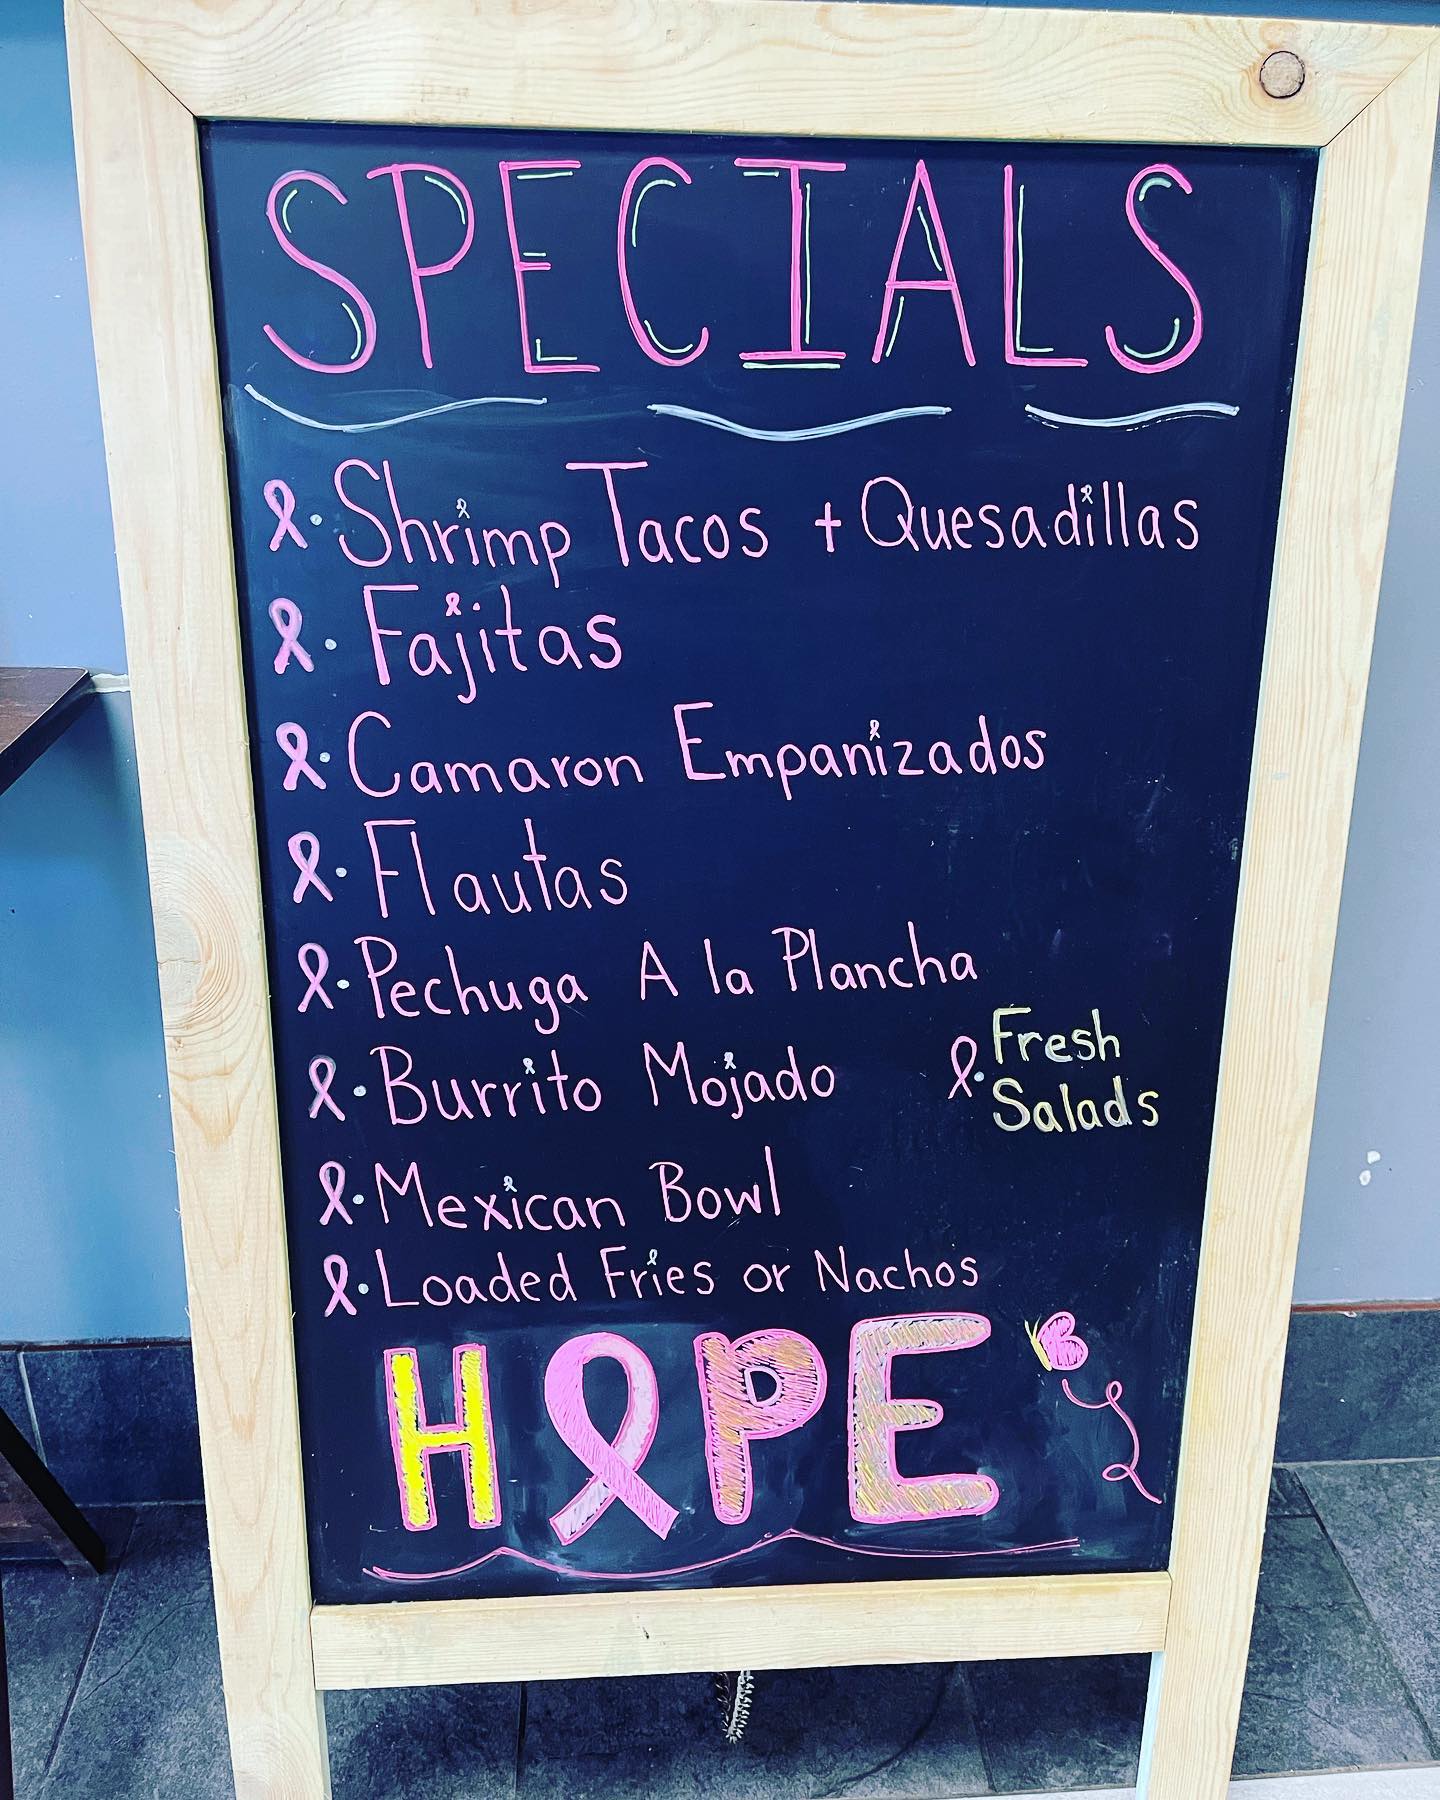 SPECIALS
Shrimp Tacos + Quesadillas
Fajitas
Camaron Empanizados
Flautas
Pechuga A la Plancha
Burrito Mojado
Fresh
Salads
Mexican Bowl
Loaded Fries or Nachos
HOPE